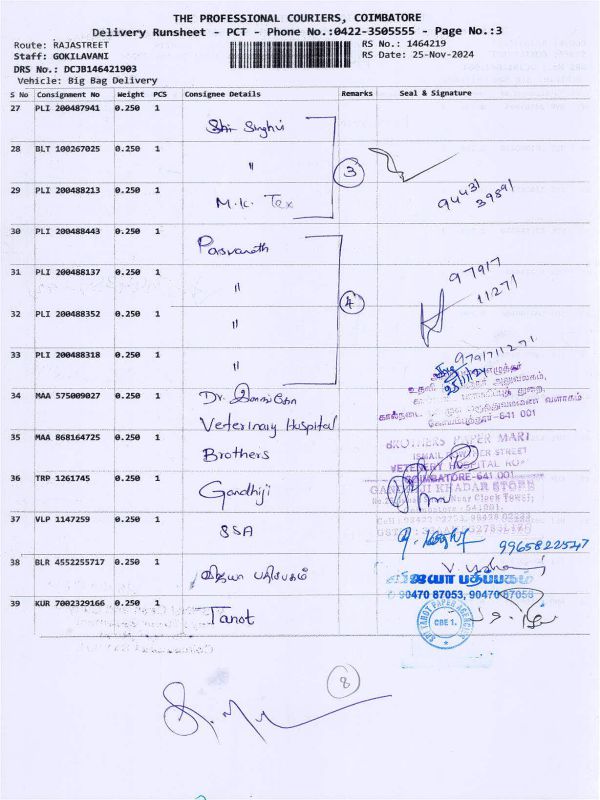 THE PROFESSIONAL COURIERS, COIMBATORE
Delivery Runsheet - PCT - Phone No.:0422-3505555 - Page No.:3
Route: RAJASTREET RS No.: 1464219
Staff: GOKILAVANI RS Date: 25-Nov-2024
DRS No.: DCJB146421903
Vehicle: Big Bag Delivery
S No Consignment No Weight PCS Consignee Details Remarks Seal & Signature
27 PLI 200487941 0.250 1 Shri Singhvi
28 BLT 100267025 0.250 1 " 3
29 PLI 200488213 0.250 1 M.K. Tex 94431
39891
30 PLI 200488443 0.250 1 Parsvanath
31 PLI 200488137 0.250 1 " 97917
11271
4
32 PLI 200488352 0.250 1 "
33 PLI 200488318 0.250 1 " 9791711271
34 MAA 575009027 0.250 1 Dr.
Veterinary Hospital
641 001
35 MAA 868164725 0.250 1 Brothers
BROTHERS PAPER MART
ISMAIL STREET
HOSPITAL
COIMBATORE-641 001
36 TRP 1261745 0.250 1 Gandhiji
KHADAR STORE
Near Clock Tower,
37 VLP 1147259 0.250 1 SSA 9965822547
38 BLR 4552255717 0.250 1 விஜயா பதிப்பகம்
விஜயா பதிப்பகம்
90470 87053, 90470 87058
39 KUR 7002329166 0.250 1 Tanot
SRI TANOT PAPER AGENCIES
CBE 1.
8